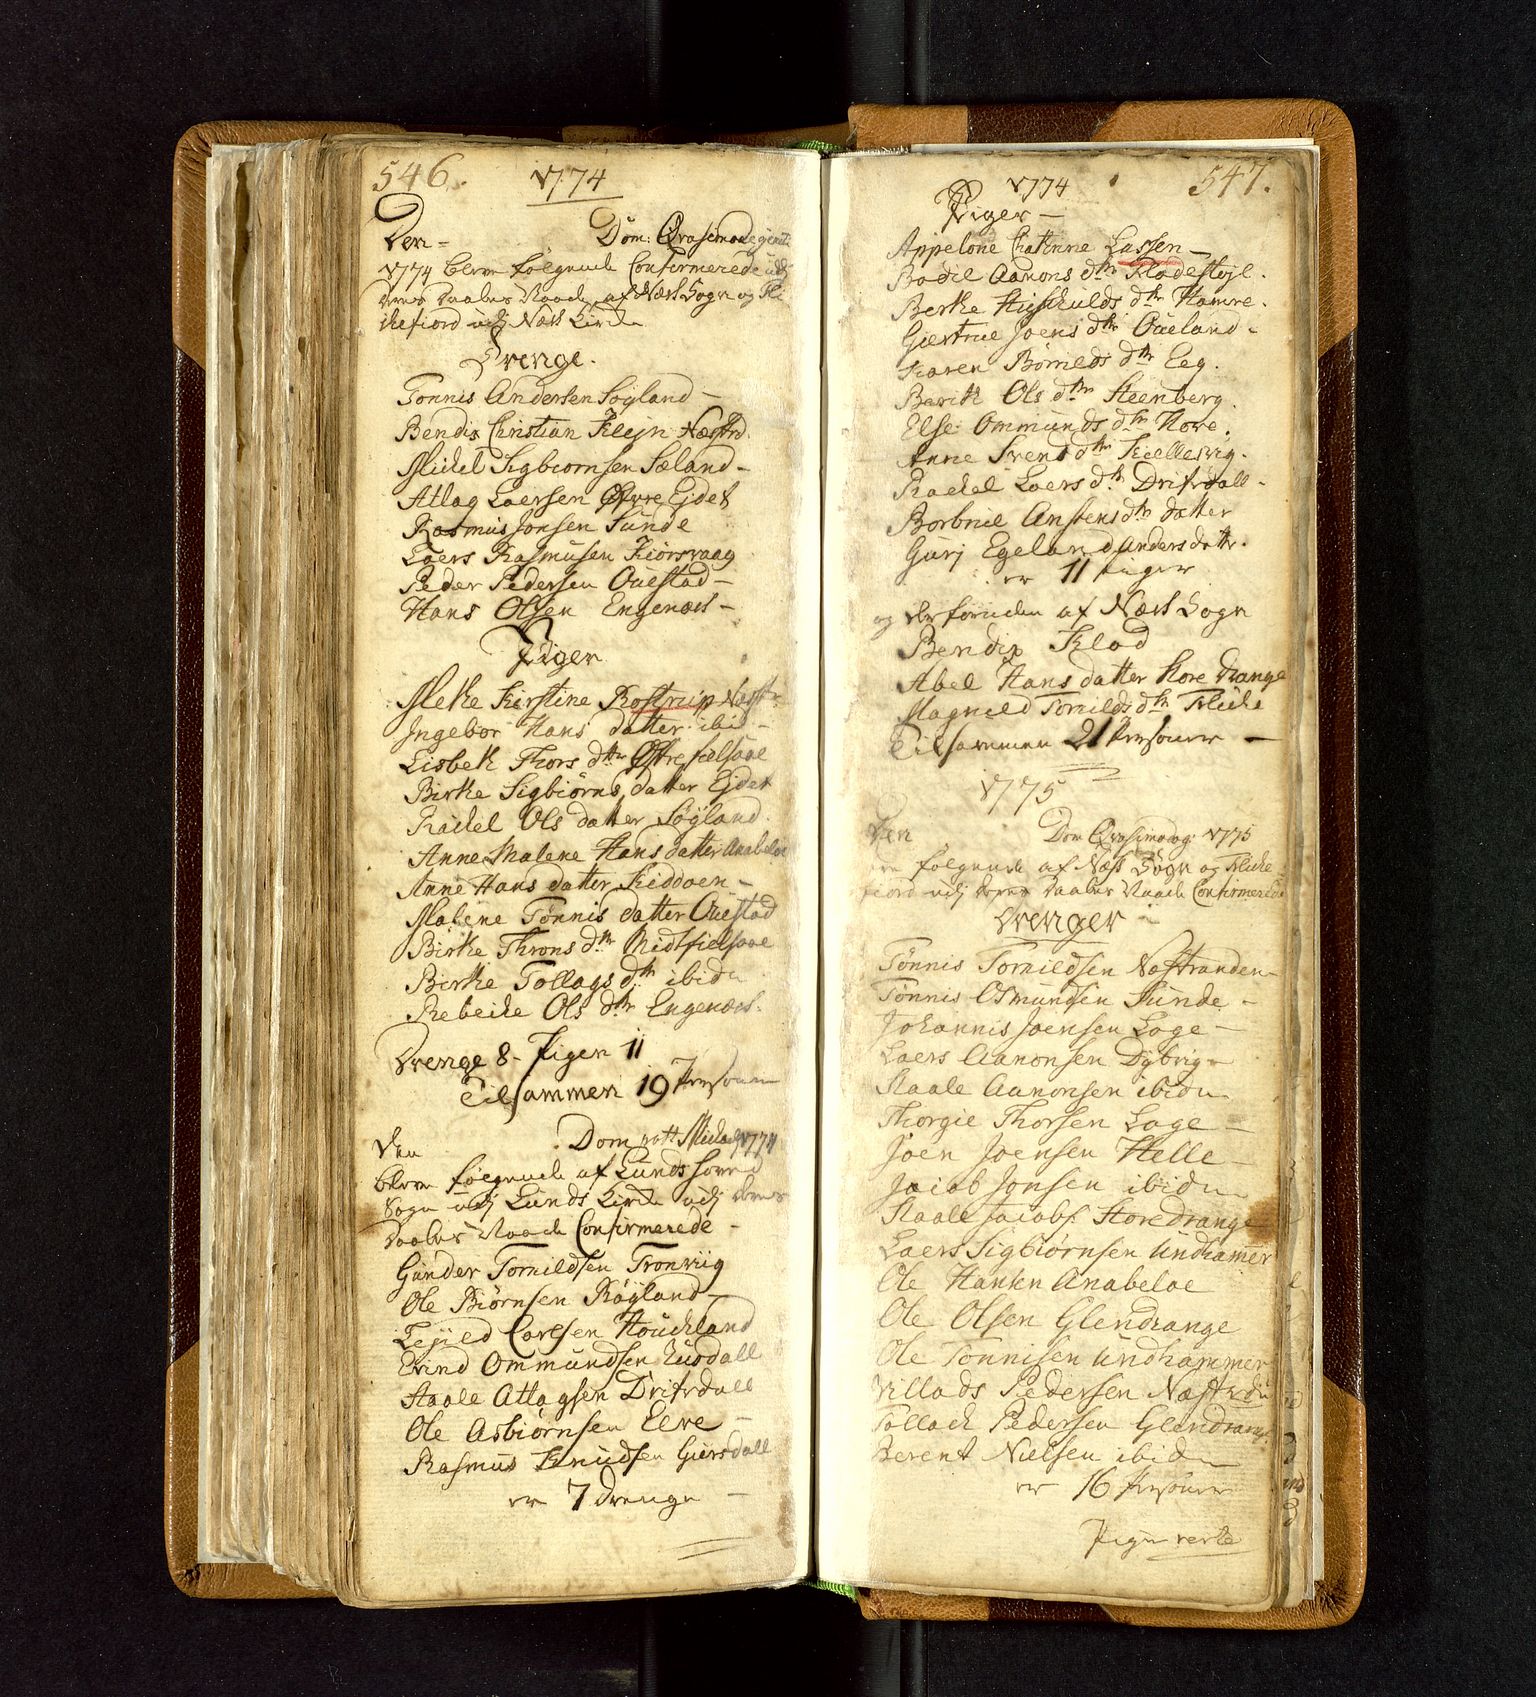 546.
1774
Den - Dom: Qvasimodogenit
1774 bleve følgende Confirmerede udj
deres Daabes Naade af Næss Sogn og Fli
ckefiord udj Næss Kircke
Drenge.
Tonnis Andersen Løyland -
Bendix Christian Kleyn Næsstrd.
Michel Sigbiornsen Sæland -
Atlag Laersen Øfvre Ejdet
Rasmus Jonsen Sunde
Laers Rasmusen Kiørsvaag
Peder Pedersen Øuestad -
Hans Olsen Engenæs -
Piger
Mette Kirstine Rostrup Næsstr
Ingebor Hans datter ibid -
Lisbeth Thors dtr Østre fielsaae
Birthe Sigbiørns datter Ejdet
Rachel Ols datter Løyland.
Anne Malene Hans datter Anabeløe
Anne Hans datter Kiddoen -
Malene Tønnis datter Øuestad
Birthe Throns dtr Midtfielsaae
Berthe Tollags dtr ibidm
Rebecke Ols dtr Engenæs.
Drenge 8 - Piger 11
Tilsammen 19 Personer
Den Dom post Michael 1774
bleve følgende af Lunds hoved
Sogn udj Lunds Kircke udj deres
Daabes Naade Confirmerede -
Gunder Tornildsen Tronviig
Ole Biørnsen Røyland -
Tejed Carlsen Houchland
Evind Ommundsen Eusdall
Staale Atlagsen Drifvdall
Ole Asbiørnsen Elve -
Rasmus Knudsen Giersdall
er 7 Drenge -
547.
1774
Piger -
Appelone Chatrine Lassen -
Bodil Aanons dtr Flodestøjl.
Berthe Hieschulds dtr Hamre.
Giertrue Joens dtr Øueland -
Karen Børilds dtr Eeg.
Berith Ols dtr Steenberg.
Else Ommunds dtr Hove.
Anne Svends dtr Kiellesvig.
Rachel Laers dtr Drifvdall -
Borbrue Anstens dtr datter
Gurj Egeland Anders dattr.
er 11 Piger
og der foruden af Næss Sogn
Bendix Flod
Abel Hans datter Store Drange
Magnild Tornilds dtr Flicke
Tilsammen 21 Personer -
1775
Den Dom Qvasimodog: 1775
ere følgende af Næss Sogn og Flicke
fiord udj deres Daabes Naade Confirmerede
Drenger -
Tønnis Tornildsen Næsstranden -
Tønnis Osmundsen Sunde -
Johannis Joensen Loge -
Laers Aanonsen Dybvig -
Staale Aanonsen ibidm
Thorgie Thorsen Loge -
Joen Joensen Helle -
Jacob Jonsen ibidm
Staale Jacobs. Store Drange
Laers Sigbiørnsen Undhamer
Ole Hansen Anabeløe
Ole Olsen Glendrange
Ole Tønnisen Undhammer
Villads Pedersen Næsstrdn
Tollach Pedersen Glendrange
Berent Nielsen ibidm
er 16 Personer
Piger verte